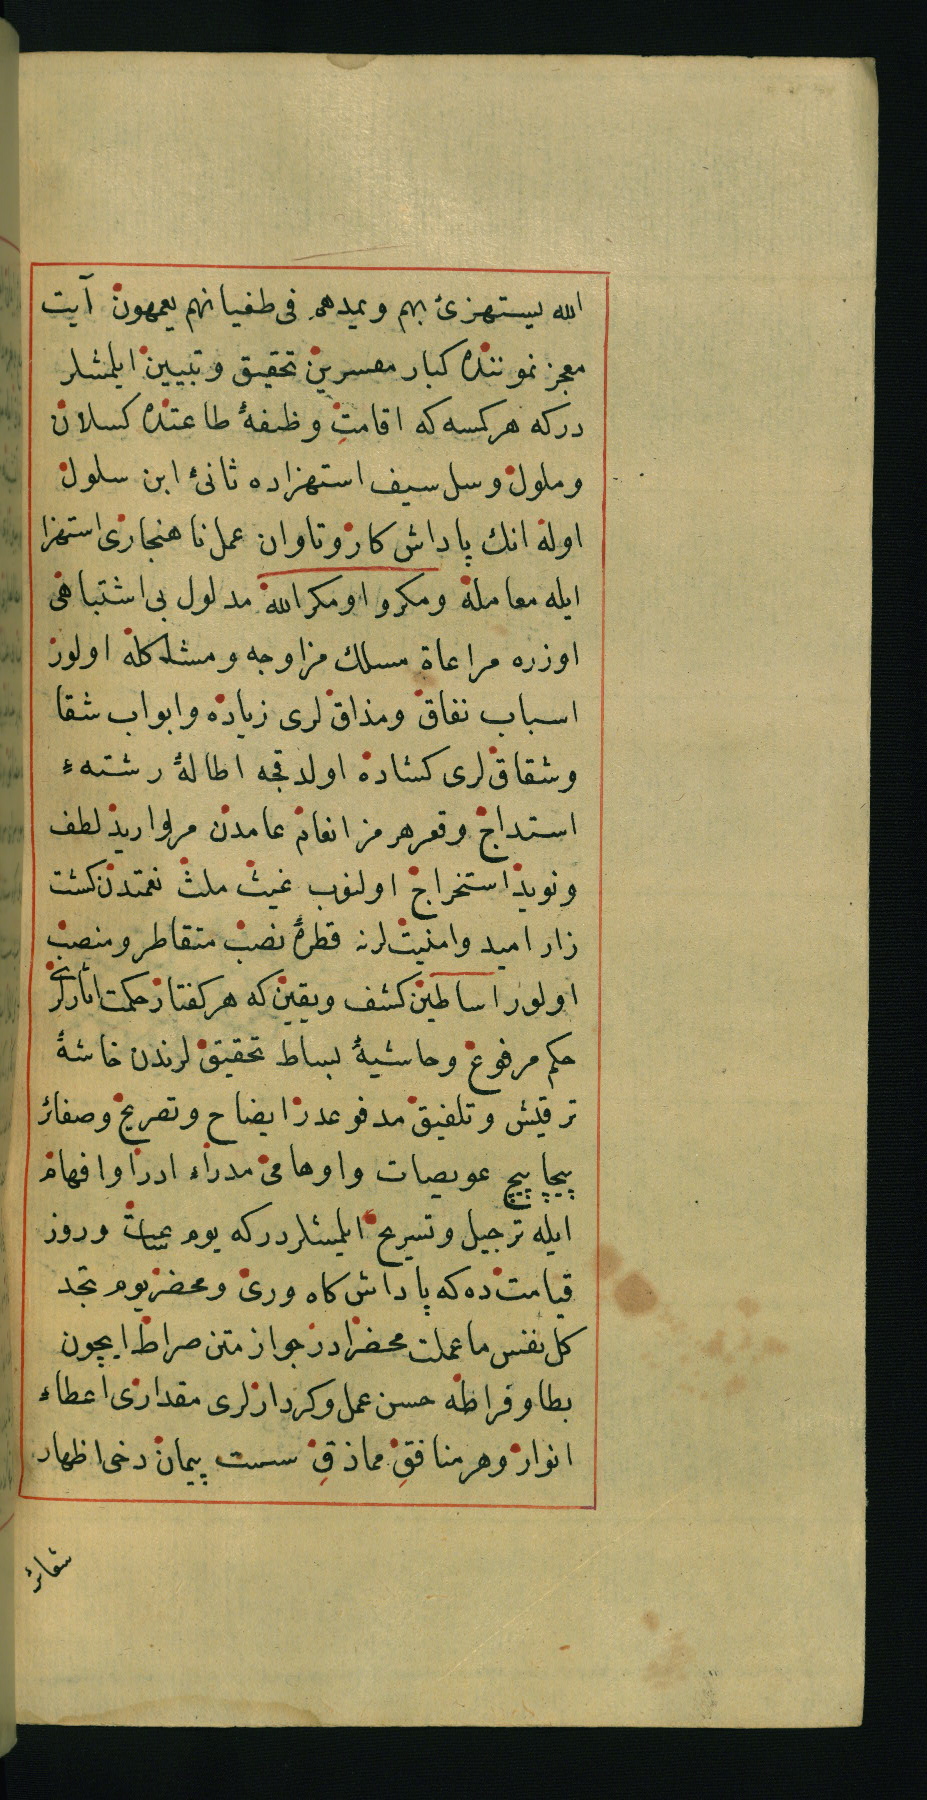 الله يستهزئ بهم ويمدهم فى طغيانهم يعمهون آيت
معجز نموننده كبار مفسرين تحقيق وتبيين ايلمشلر
دركه هر كمسه كه اقامت وظيفهٔ طاعتده كسلان
وملول وسل سيف استهزاده ثانئ ابن سلول
اوله انك پاداش كار وتاوان عمل ناهنجارى استهزا
ايله معامله ومكروا ومكر الله مدلول بى اشتباهى
اوزره مراعاة مسلك مزاوجه ومشاكله اولور
اسباب نفاق ومذاق لرى زياده وابواب شقا
وشقاق لرى كشاده اولدقجه اطالهٔ رشتهء
استداج وقعر هر مز انعام عامدن مرواريد لطف
ونويد استخراج اولنوب غيث ملث نعمتدن كشت
زار اميد وامنيت لرنه قطرهٔ نصب متقاطر ومنصب
اولور اساطين كشف ويقين كه هر كفتار حكمت اثارلرى
حكم مرفوع وحاشيهٔ بساط تحقيق لرندن خاشهٔ
ترقيش وتلفيق مدفوعدر ايضاح وتصريح وصفائر
پيچاپيچ عويصات واوهامى مدراء ادرا وافهام
ايله ترجيل وتسريح ايلمشلردركه يوم ساعت وروز
قيامت ده كه پاداش كاه ورى ومحضر يوم تجد
كل نفس ما عملت محضرا در جواز متن صراط ايچون
بطاوقراطه حسن عمل وكردارلرى مقدارى اعطاء
انوار وهر منافق مماذق سست پيمان دخى اظهار
شقائر